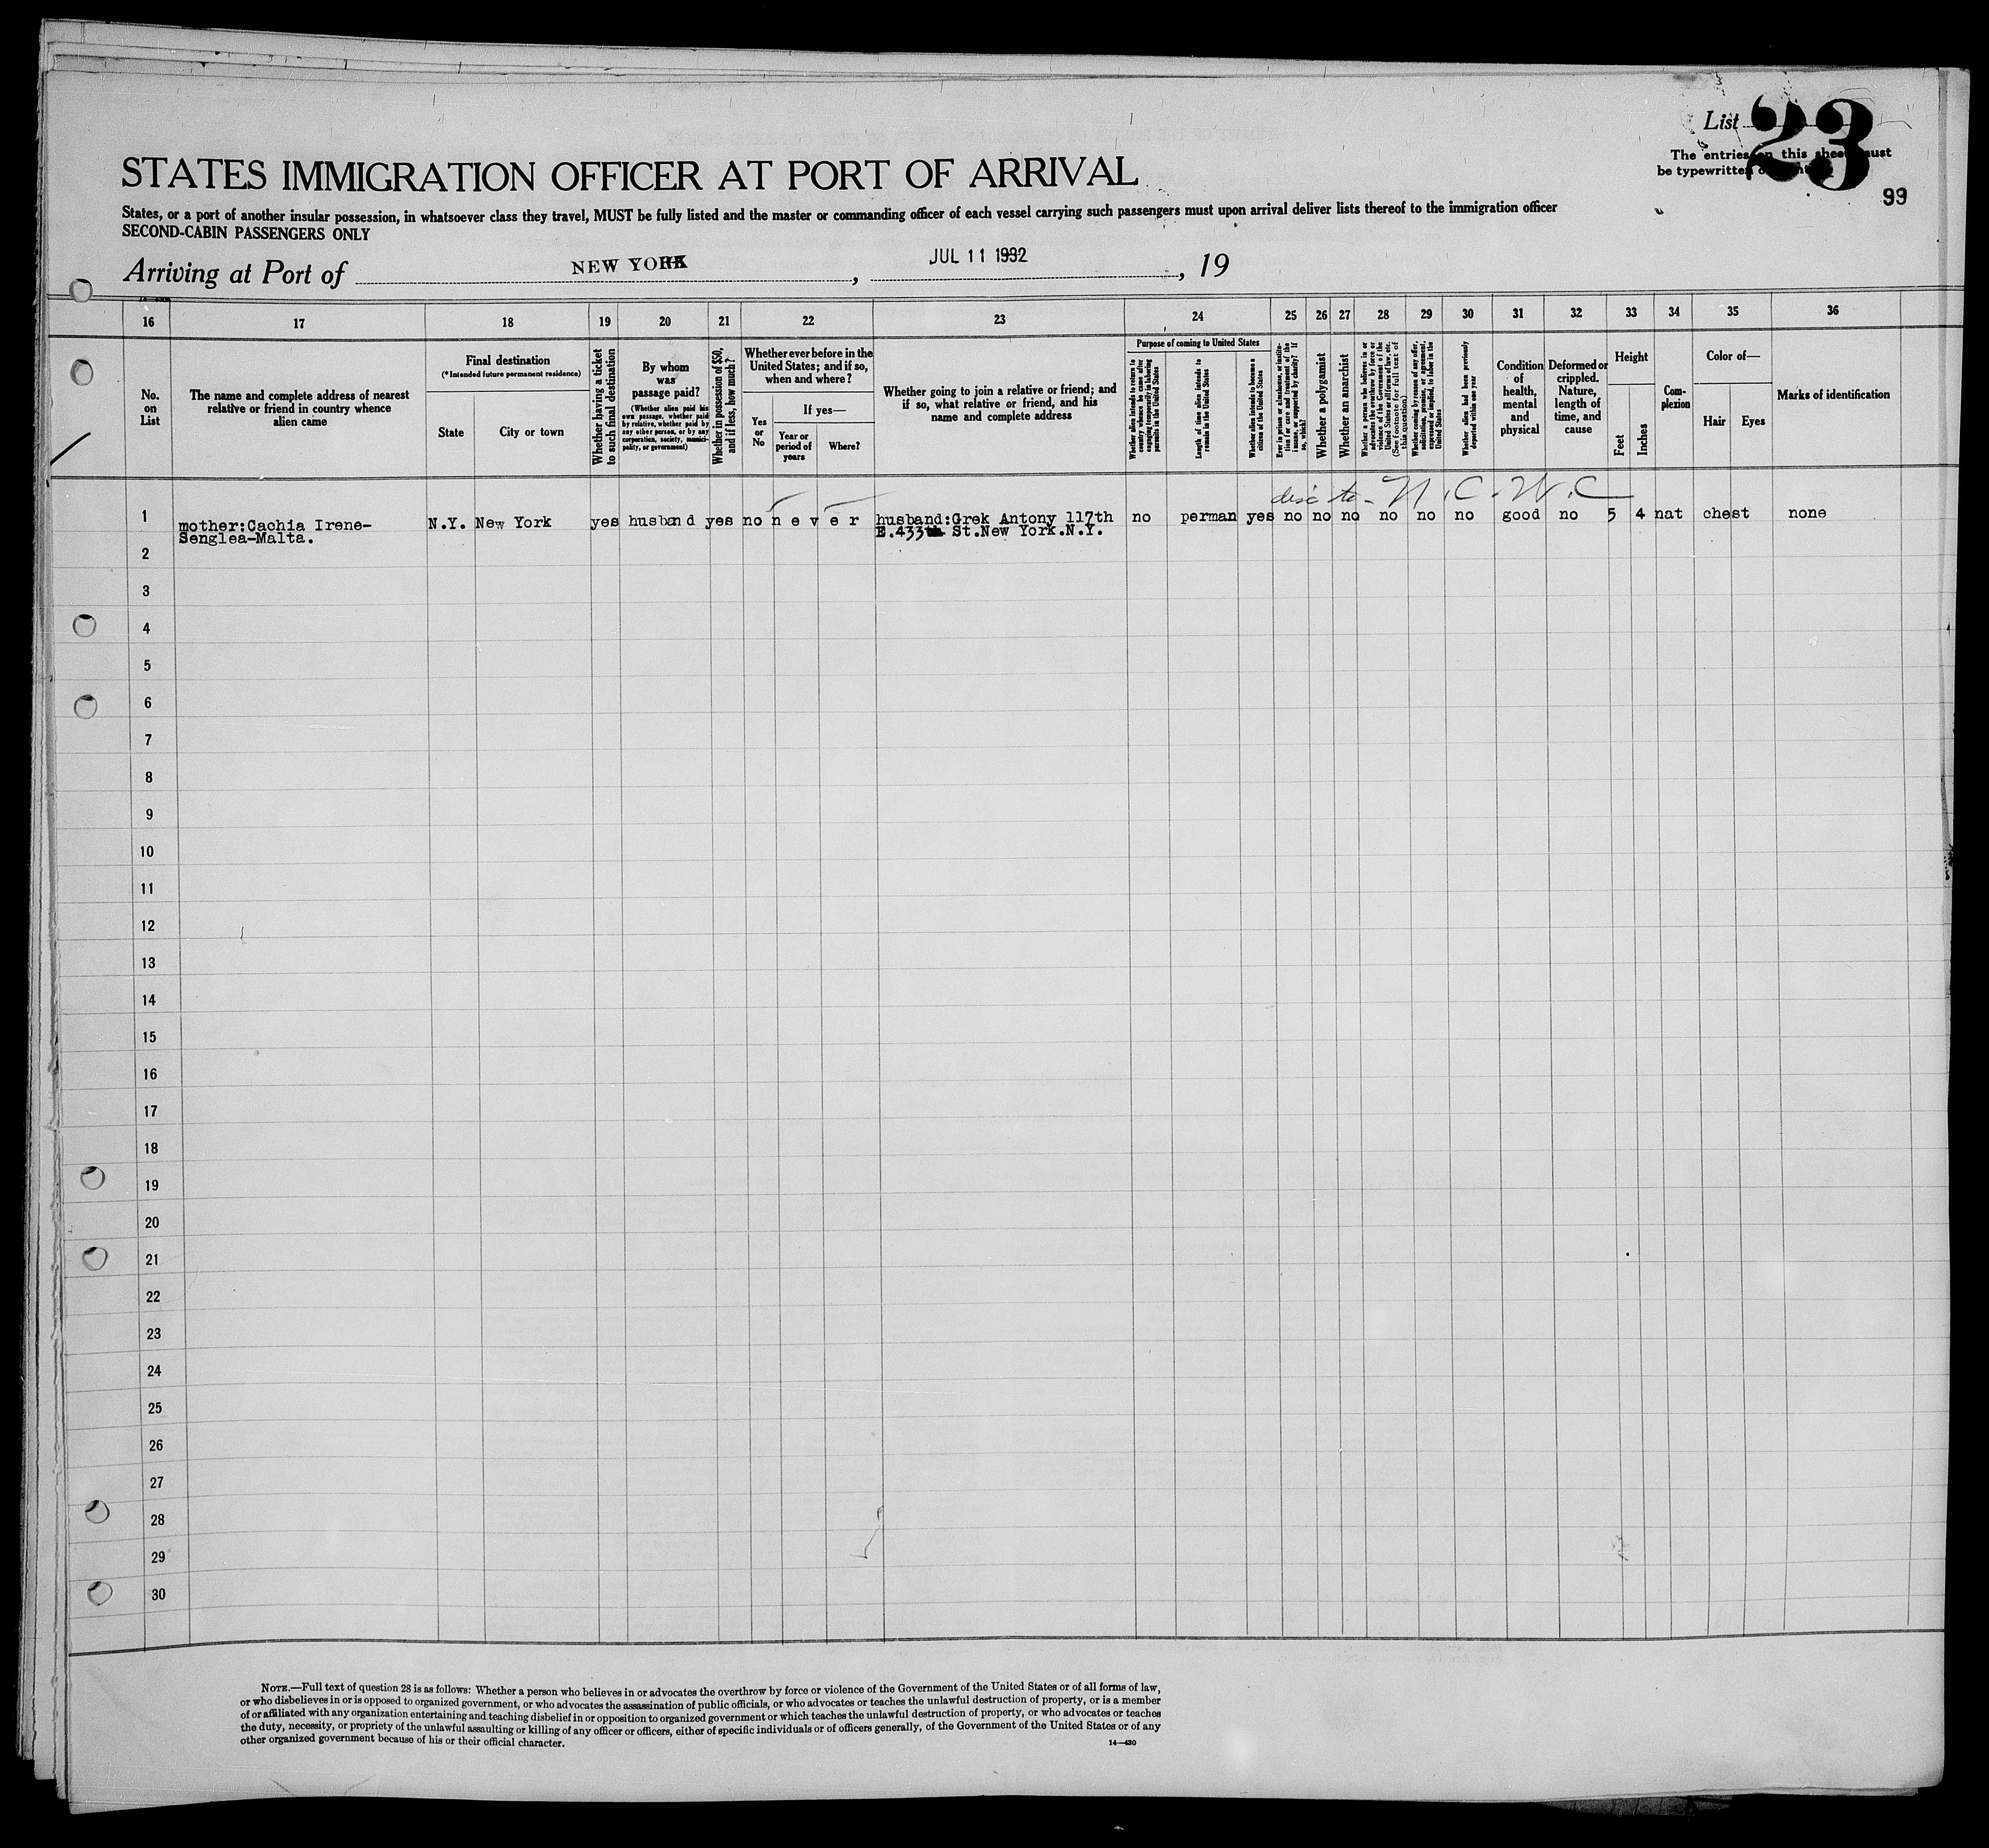 List 23
The entries on this sheet must
be typewritten or
99
STATES IMMIGRATION OFFICER AT PORT OF ARRIVAL
States, or a port of another insular possession, in whatsoever class they travel, MUST be fully listed and the master or commanding officer of each vessel carrying such passengers must upon arrival deliver lists thereof to the immigration officer
SECOND-CABIN PASSENGERS ONLY
Arriving at Port of NEW YORK, JUL 11 1932, 19
16 17 18 19 20 21 22 23 24 25 26 27 28 29 30 31 32 33 34 35 36
No.
on
List
The name and complete address of nearest
relative or friend in country whence
alien came
Final destination
(*Intended future permanent residence)
State
City or town
Whether having a ticket
to such final destination
By whom
was
passage paid?
(Whether alien paid his
own passage, whether paid
by relative, whether paid by
any other person, or by any
corporation, society, munici-
pality, or government)
Whether in possession of $50,
and if less, how much?
Whether ever before in the
United States; and if so,
when and where?
Yes
or
No
If yes—
Year or
period of
years
Where?
Whether going to join a relative or friend; and
if so, what relative or friend, and his
name and complete address
Purpose of coming to United States
Whether alien intends to return to
country whence he came after
engaging temporarily in laboring
pursuits in the United States
Length of time alien intends to
remain in the United States
Whether alien intends to become a
citizen of the United States
Ever in prison or almshouse, or institu-
tion for care and treatment of the
insane, or supported by charity? If
so, which?
Whether a polygamist
Whether an anarchist
Whether a person who believes in or
advocates the overthrow by force or
violence of the Government of the
United States or all forms of law, etc.
(See footnote for full text of
this question)
Whether coming by reason of any offer,
solicitation, promise, or agreement,
expressed or implied, to labor in the
United States
Whether alien had been previously
deported within one year
Condition
of
health,
mental
and
physical
Deformed or
crippled.
Nature,
length of
time, and
cause
Height
Feet
Inches
Com-
plexion
Color of—
Hair
Eyes
Marks of identification
disc to - N.C.W.C
1 mother:Cachia Irene- N.Y. New York yes husband yes no n e v e r husband:Grek Antony 117th no perman yes no no no no no no good no 5 4 nat chest none
Senglea-Malta. E.433th St.New York.N.Y.
2
3
4
5
6
7
8
9
10
11
12
13
14
15
16
17
18
19
20
21
22
23
24
25
26
27
28
29
30
NOTE.—Full text of question 28 is as follows: Whether a person who believes in or advocates the overthrow by force or violence of the Government of the United States or of all forms of law,
or who disbelieves in or is opposed to organized government, or who advocates the assassination of public officials, or who advocates or teaches the unlawful destruction of property, or is a member
of or affiliated with any organization entertaining and teaching disbelief in or opposition to organized government or which teaches the unlawful destruction of property, or who advocates or teaches
the duty, necessity, or propriety of the unlawful assaulting or killing of any officer or officers, either of specific individuals or of officers generally, of the Government of the United States or of any
other organized government because of his or their official character.
14—430